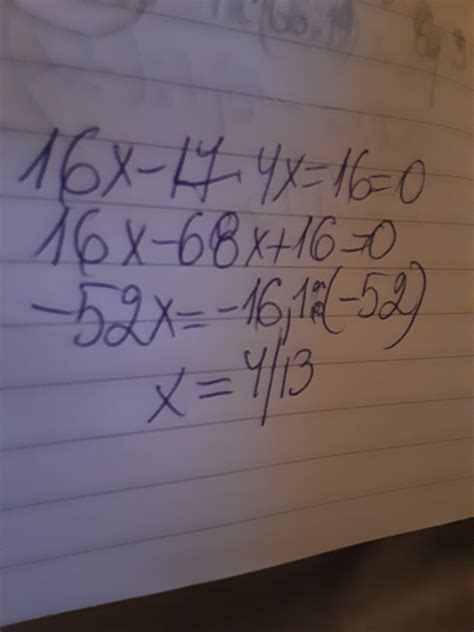 16x-17·4x=16=0
16x-68x+16=0
-52x=-16,1:(-52)
x=4/13